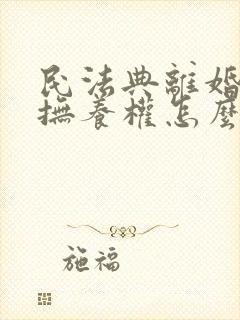 民法典離婚
撫養權怎麼
施福